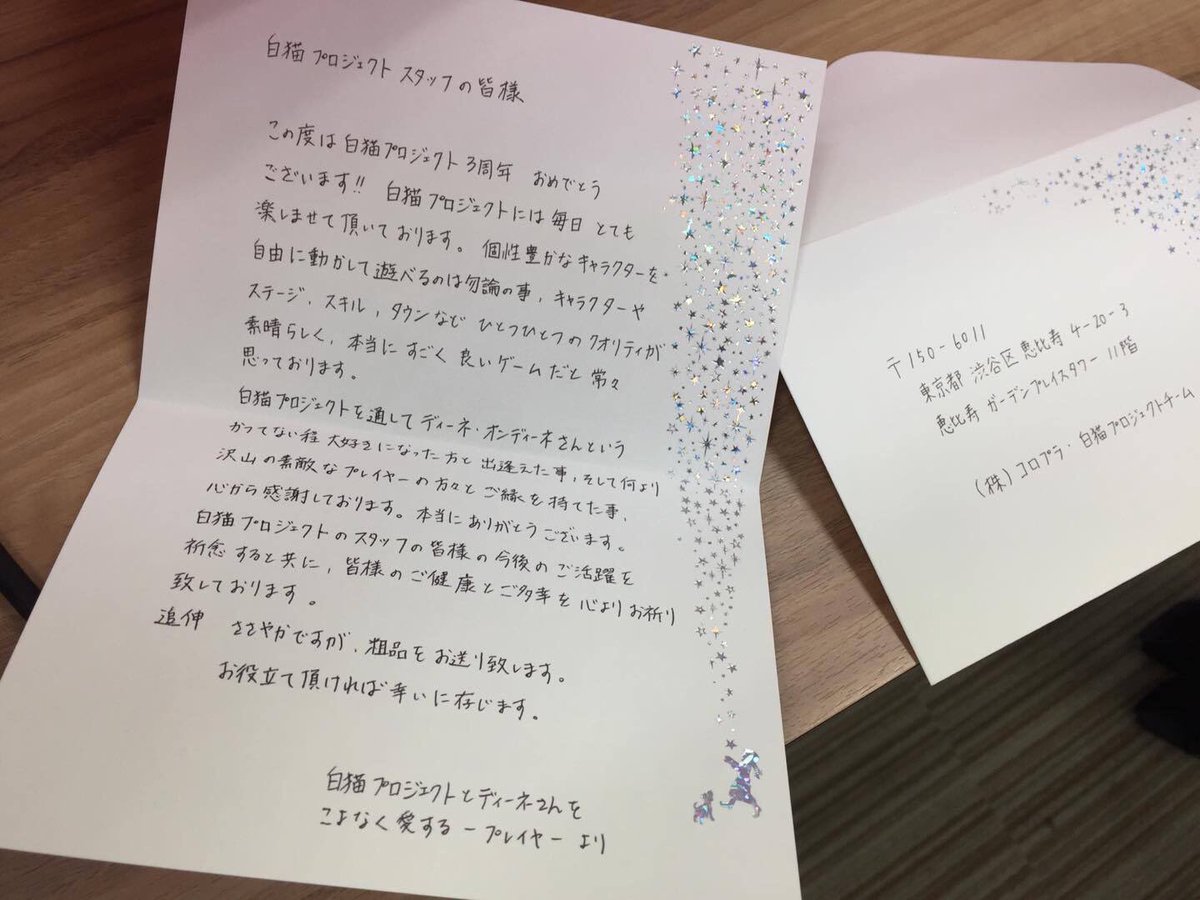 白猫プロジェクト スタッフの皆様
この度は白猫プロジェクト3周年 おめでとう
ございます!! 白猫プロジェクトには毎日 とても
楽しませて頂いております。個性豊かなキャラクターを
自由に動かして遊べるのは勿論の事、キャラクターや
ステージ、スキル、タウンなど ひとつひとつのクオリティが
素晴らしく、本当に すごく 良いゲームだと 常々
思っております。
白猫プロジェクトを通して ディーネ・オンディーネさんという
かつてない程 大好きになった方と 出逢えた事、そして何より
沢山の素敵なプレイヤーの方々と ご縁を 持てた事、
心から感謝しております。本当にありがとうございます。
白猫プロジェクトのスタッフの皆様の今後のご活躍を
祈念すると共に、皆様のご健康とご多幸を 心よりお祈り
致しております。
追伸 ささやかですが、粗品をお送り致します。
お役立て頂ければ幸いに存じます。
白猫プロジェクトとディーネさんを
こよなく愛する一プレイヤー より
〒150-6011
東京都 渋谷区 恵比寿 4-20-3
恵比寿 ガーデンプレイスタワー 11階
(株)コロプラ・白猫プロジェクトチーム